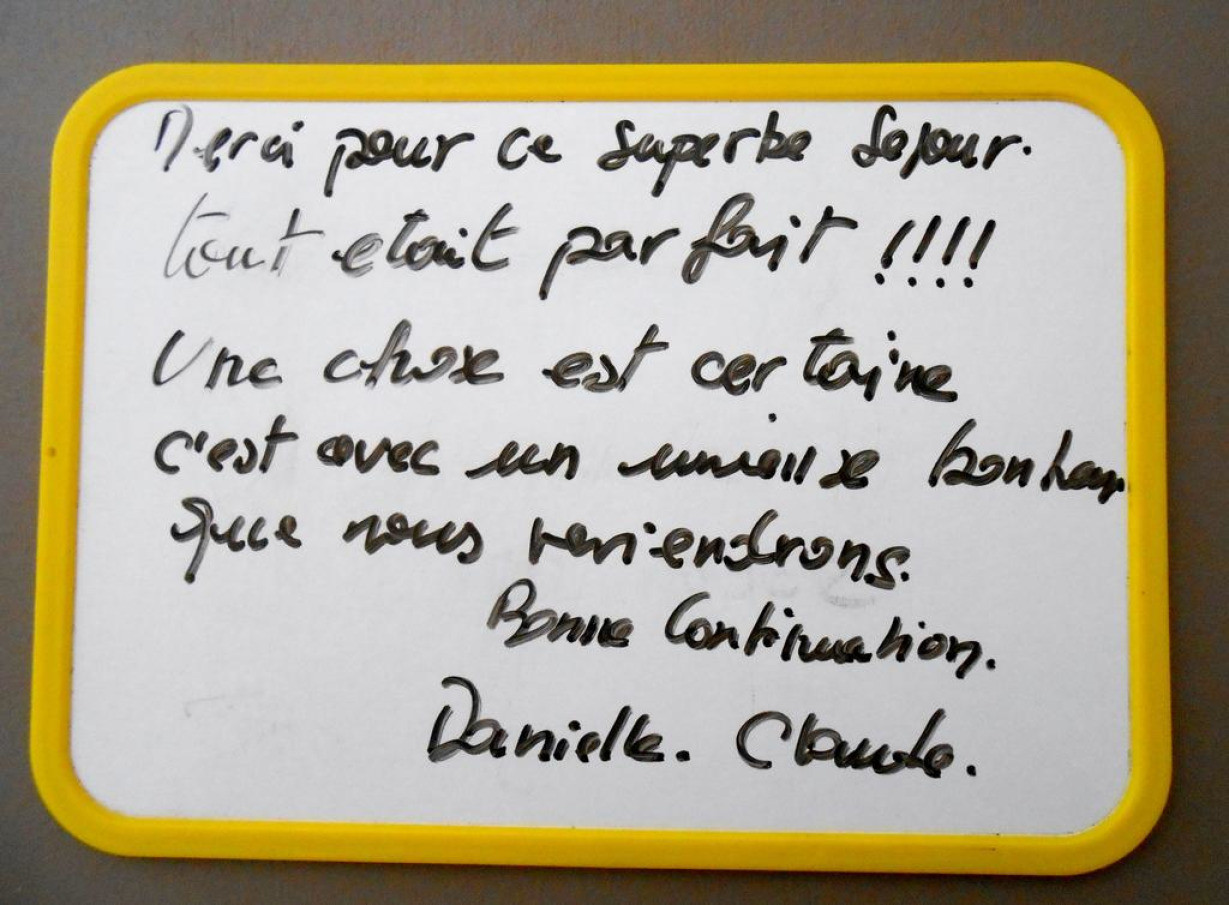 Merci pour ce superbe sejour.
tout etait parfait !!!!
Une chose est certaine
c'est avec un bonheur
que nous reviendrons.
Bonne Continuation.
Danielle. Claude.